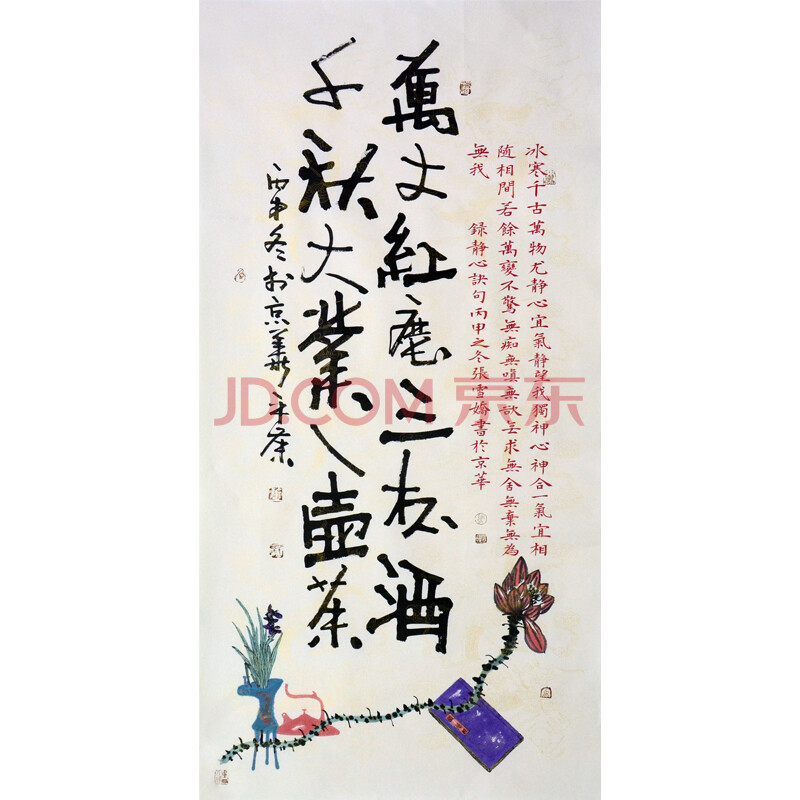 冰寒千古萬物尤静心宜氣静望我獨神心神合一氣宜相
隨相間若餘萬變不驚無痴無嗔無欲無求無舍無棄無為
無我 録静心訣句丙申之冬張雪嬌書於京華
萬丈紅塵三杯酒
千秋大業一壺茶
丙申冬於京華
JD.COM 京东